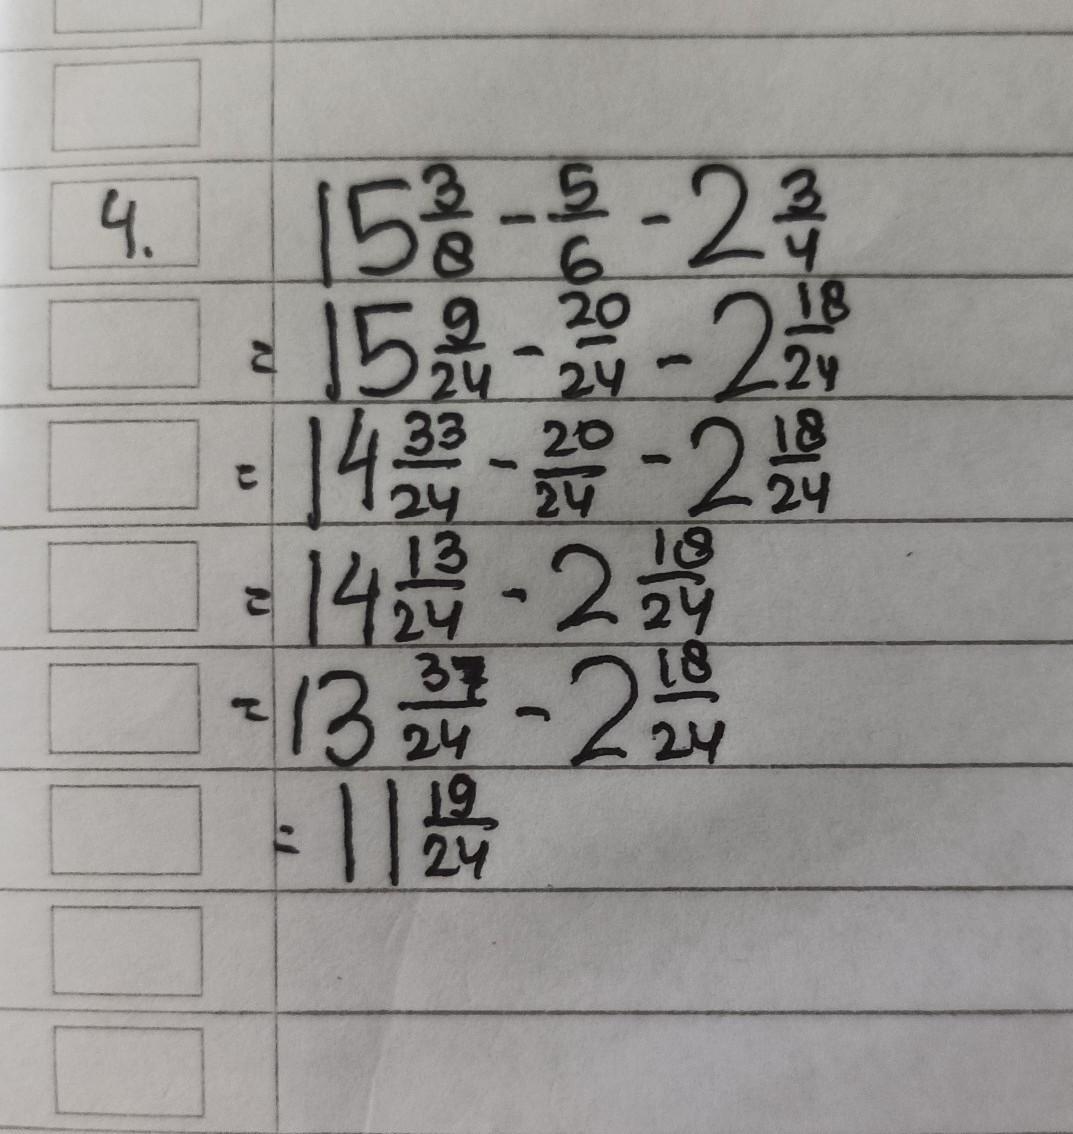 4. 15 3/8 - 5/6 - 2 3/4
= 15 9/24 - 20/24 - 2 18/24
= 14 33/24 - 20/24 - 2 18/24
= 14 13/24 - 2 18/24
= 13 37/24 - 2 18/24
= 11 19/24